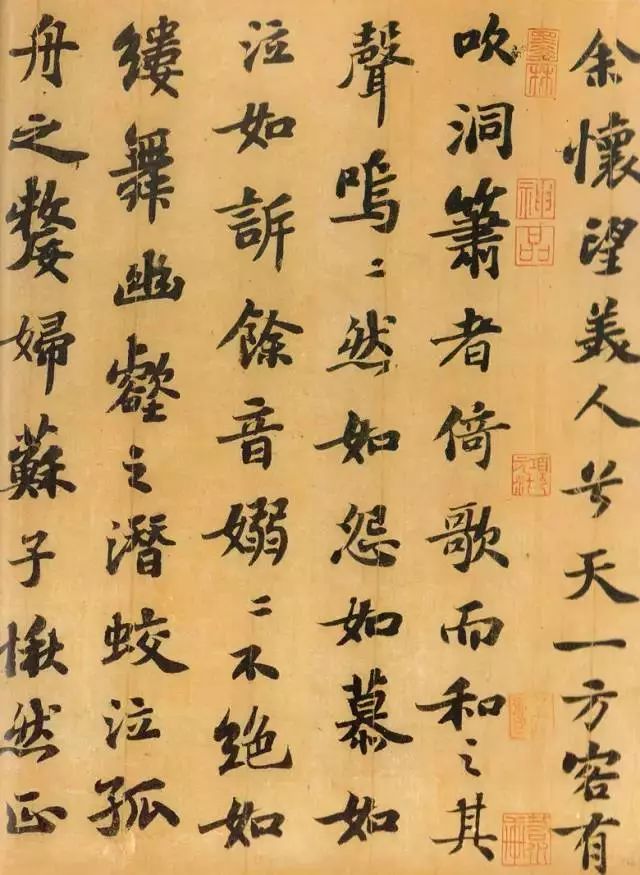 余懷望美人兮天一方客有
吹洞簫者倚歌而和之其
聲嗚〻然如怨如慕如
泣如訴餘音嫋〻不絕如
縷舞幽壑之潛蛟泣孤
舟之嫠婦蘇子愀然正
神品